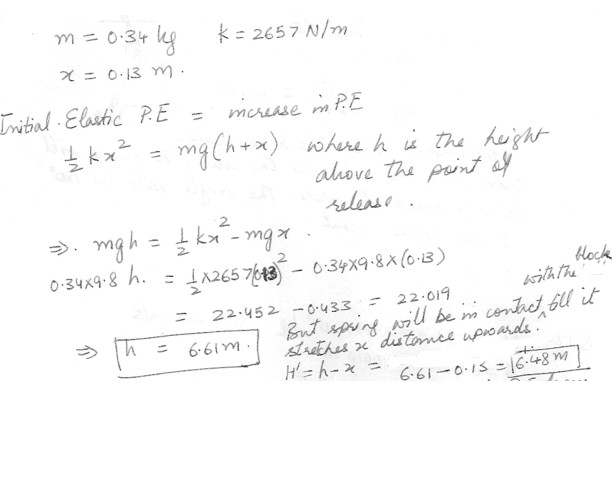 m = 0.34 kg k = 2657 N/m
x = 0.13 m.
Initial Elastic P.E = increase in P.E
1/2 kx² = mg(h+x) where h is the height
above the point of
release.
⇒. mgh = 1/2 kx² - mgx.
0.34x9.8 h. = 1/2 x2657(0.13)² - 0.34x9.8x(0.13)
= 22.452 - 0.433 = 22.019
⇒ h = 6.61m.
But spring will be in contact with the block till it
stretches x distance upwards.
H' = h-x = 6.61-0.13 = 6.48m